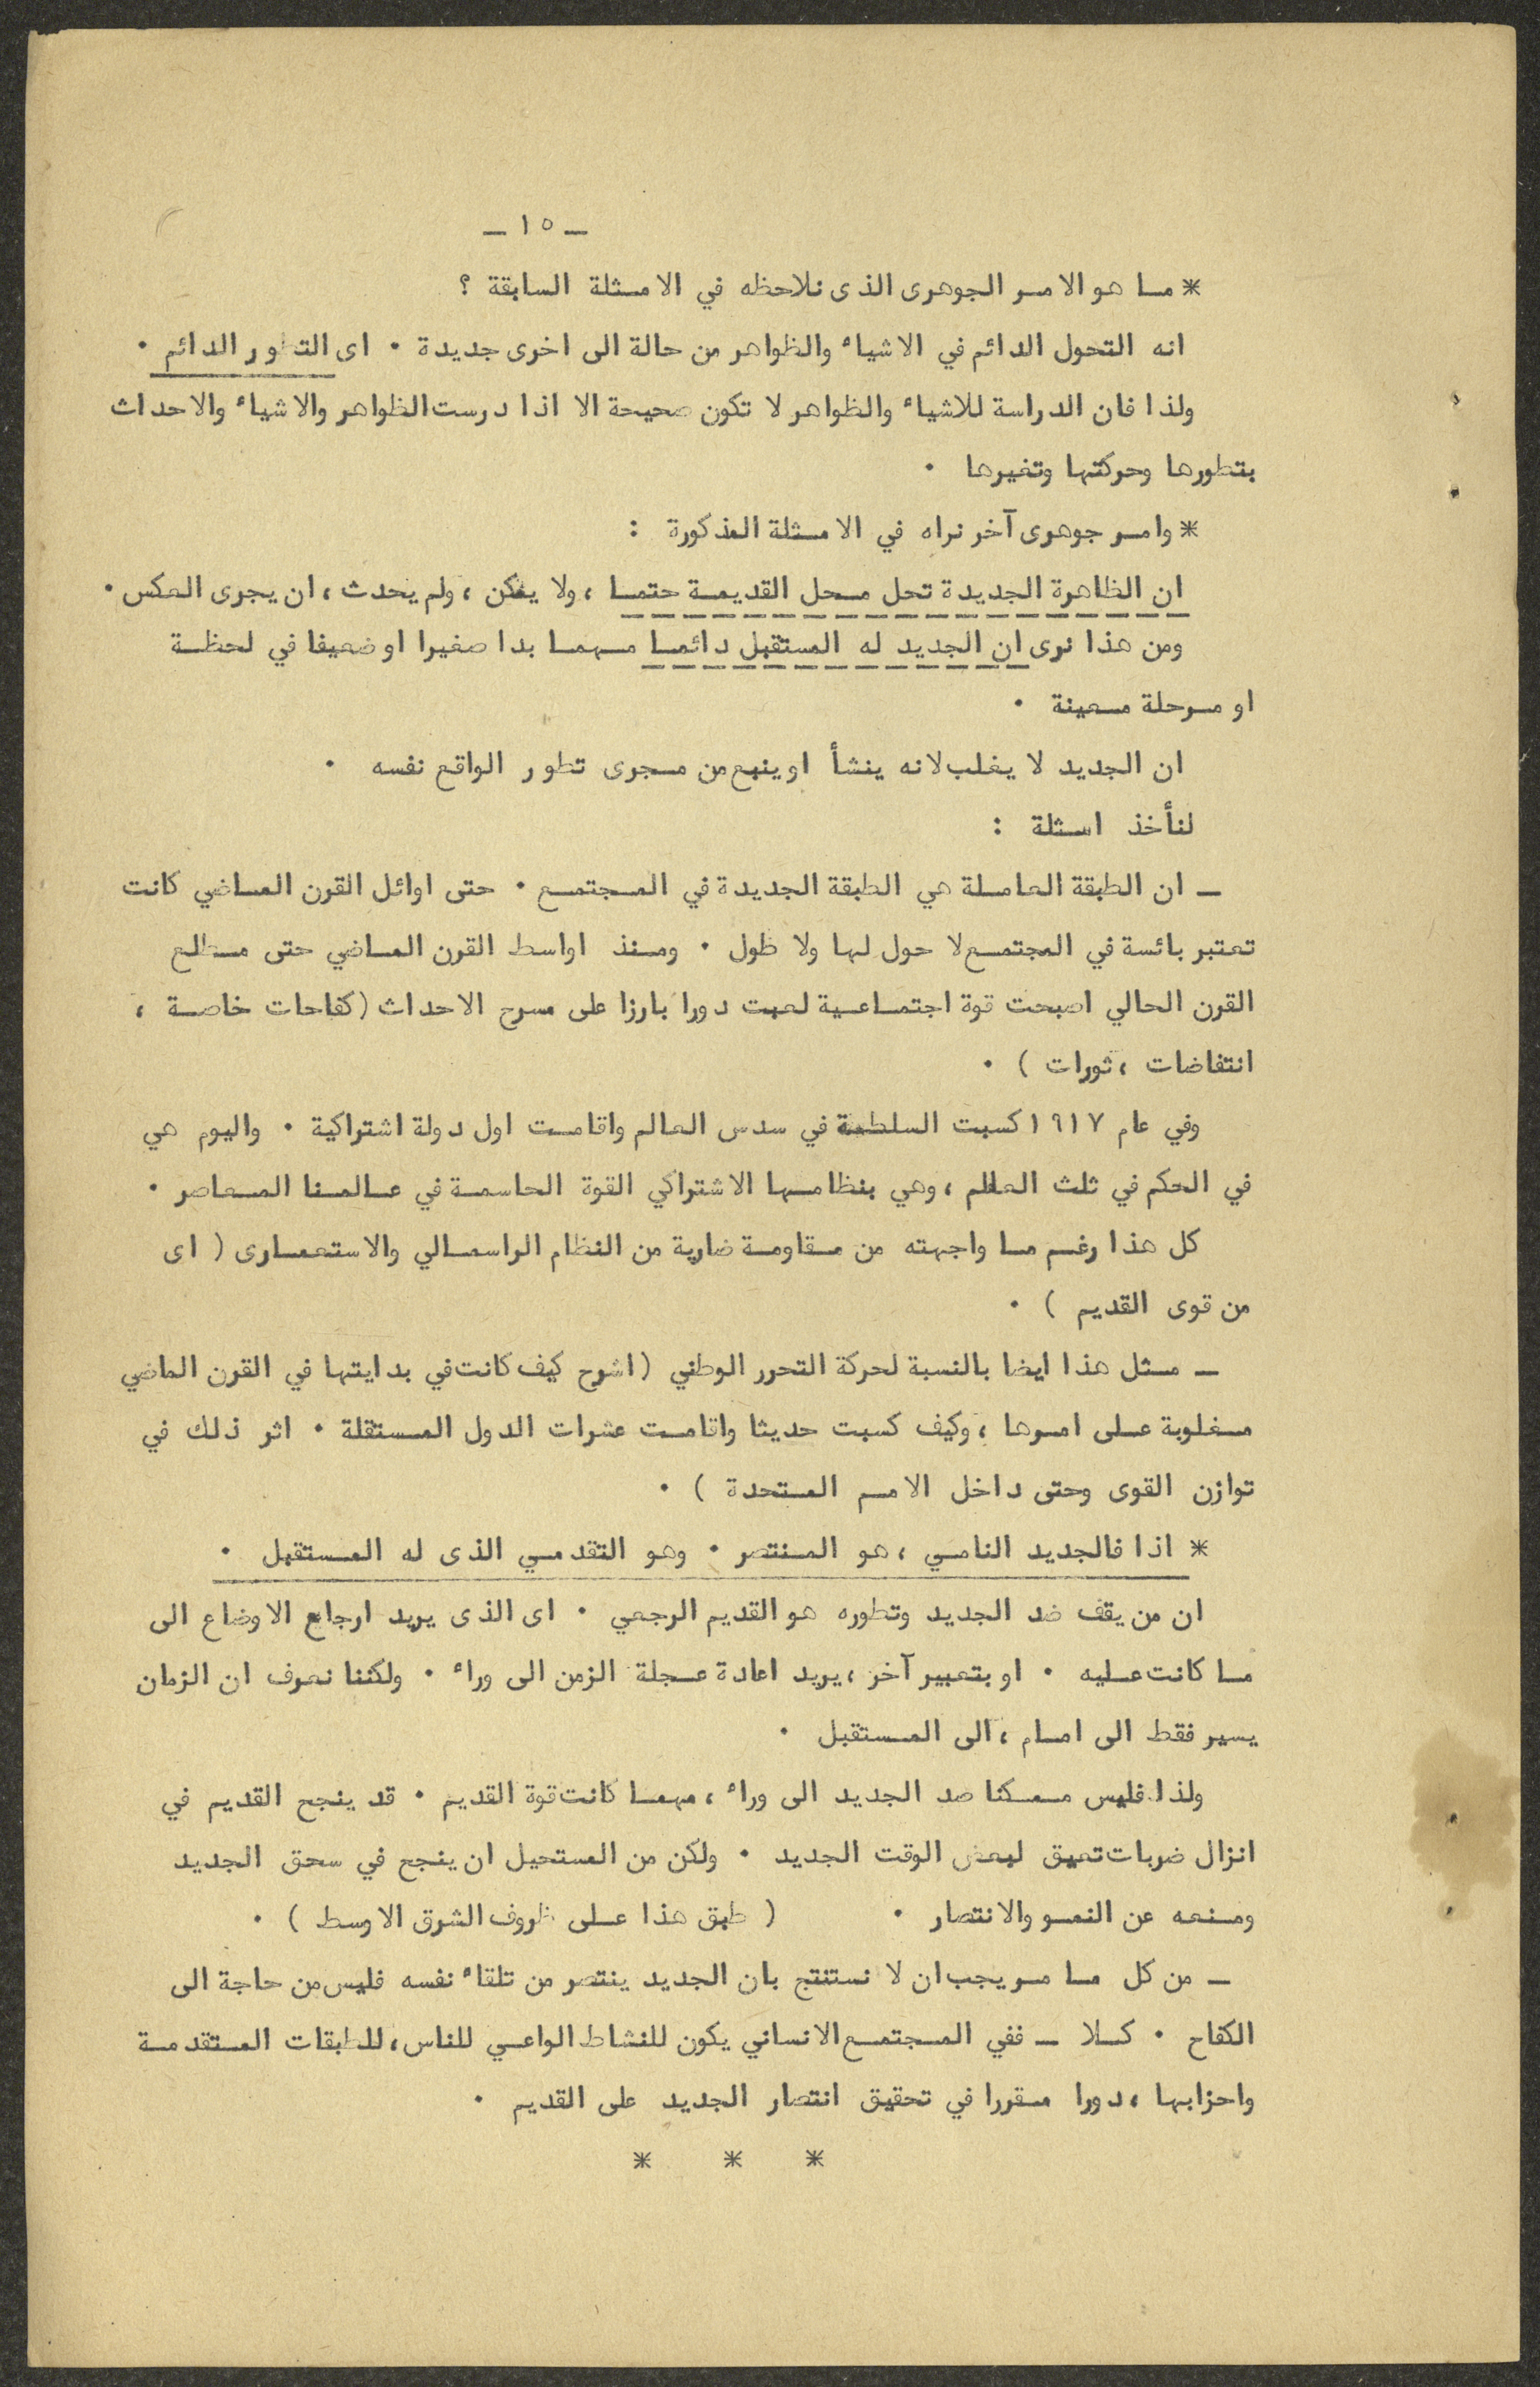 ـ ١٥ ـ
* ما هو الامر الجوهرى الذى نلاحظه في الامثلة السابقة ؟
انه التحول الدائم في الاشياء والظواهر من حالة الى اخرى جديدة ٠ اى التطور الدائم ٠
ولذا فان الدراسة للاشياء والظواهر لا تكون صحيحة الا اذا درست الظواهر والاشياء والاحداث
بتطورها وحركتها وتغيرها ٠
* وامر جوهرى آخر نراه في الامثلة المذكورة :
ان الظاهرة الجديدة تحل محل القديمة حتما ، ولا يمكن ، ولم يحدث ، ان يجرى العكس ٠
ومن هذا نرى ان الجديد له المستقبل دائما مهما بدا صغيرا او ضعيفا في لحظة
او مرحلة معينة ٠
ان الجديد لا يغلب لانه ينشأ او ينبع من مجرى تطور الواقع نفسه ٠
لنأخذ امثلة :
ـ ان الطبقة العاملة هي الطبقة الجديدة في المجتمع ٠ حتى اوائل القرن الماضي كانت
تعتبر بائسة في المجتمع لا حول لها ولا طول ٠ ومنذ اواسط القرن الماضي حتى مطلع
القرن الحالي اصبحت قوة اجتماعية لعبت دورا بارزا على مسرح الاحداث ( كفاحات خاصة ،
انتفاضات ، ثورات ) ٠
وفي عام ١٩١٧ كسبت السلطة في سدس العالم واقامت اول دولة اشتراكية ٠ واليوم هي
في الحكم في ثلث العالم ، وهي بنظامها الاشتراكي القوة الحاسمة في عالمنا المعاصر ٠
كل هذا رغم ما واجهته من مقاومة ضارية من النظام الراسمالي والاستعمارى ( اى
من قوى القديم ) ٠
ـ مثل هذا ايضا بالنسبة لحركة التحرر الوطني ( اشرح كيف كانت في بدايتها في القرن الماضي
مغلوبة على امرها ، وكيف كسبت حديثا واقامت عشرات الدول المستقلة ٠ اثر ذلك في
توازن القوى وحتى داخل الامم المتحدة ) ٠
* اذا فالجديد النامي ، هو المنتصر ٠ وهو التقدمي الذى له المستقبل ٠
ان من يقف ضد الجديد وتطوره هو القديم الرجعي ٠ اى الذى يريد ارجاع الاوضاع الى
ما كانت عليه ٠ او بتعبير آخر ، يريد اعادة عجلة الزمن الى وراء ٠ ولكننا نعرف ان الزمان
يسير فقط الى امام ، الى المستقبل ٠
ولذا فليس ممكنا صد الجديد الى وراء ، مهما كانت قوة القديم ٠ قد ينجح القديم في
انزال ضربات تعيق لبعض الوقت الجديد ٠ ولكن من المستحيل ان ينجح في سحق الجديد
ومنعه عن النمو والانتصار ٠ ( طبق هذا على ظروف الشرق الاوسط ) ٠
ـ من كل ما مر يجب ان لا نستنتج بان الجديد ينتصر من تلقاء نفسه فليس من حاجة الى
الكفاح ٠ كلا ـ ففي المجتمع الانساني يكون للنشاط الواعي للناس ، للطبقات المتقدمة
واحزابها ، دورا مقررا في تحقيق انتصار الجديد على القديم ٠
* * *